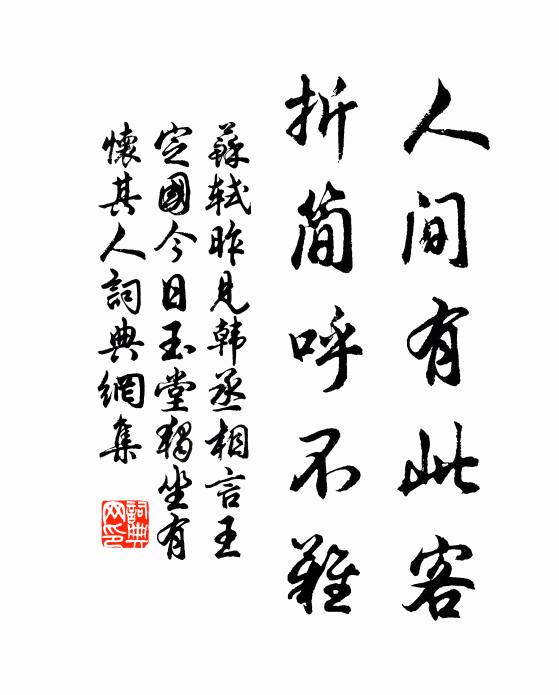 人间有此客
折简呼不难
蘇轼昨見韩丞相言王
定國今日玉堂獨坐有
懷其人詞典網集
詞典
网印